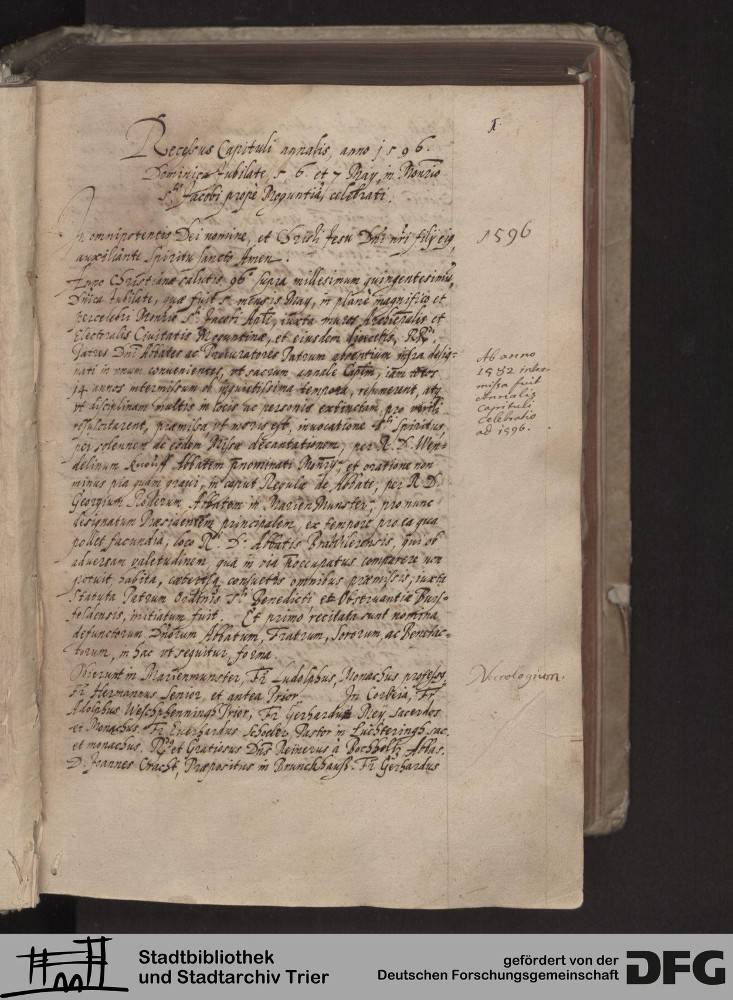 1.
Recessus Capituli annalis, anno 1596.
Dominica Jubilate, 5. 6 et 7 May, in Monrio
Sti Jacobi prope Moguntiã celebrati.
In omnipotentis Dei nomine, et Christi Jesu Dni nri filij eig,
auxiliante Spiritu sancto Amen.
Anno Christianæ salutis 96 supra millesimum quingentesimũ,
Dnica Jubilate, quæ fuit 5 mensis May, in plane magnifico et
percelebri Monrio Sti Jacobi Apli, iuxta muros Archiepalis et
Electoralis Civitatis Moguntinæ, et eiusdem diocesis, RRdi
Patres Dni Abbates ac Procuratores Patrum absentium infra desig=
nati in unum convenientes, ut sacrum annale Capłm, iam totos
14 annos intermissum ob inquietissima tempora, resumerent, atq
ut disciplinam multis in locis ac personis extinctam, pro virili
resuscitarent, præmissa ut moris est, invocatione Sti Spiritus,
per solennem de eodem Missæ decantationem, per R. D. Wen=
delinum Abbatem prænominati Monrij et oratione non
minus pia quam gravi, in caput Regulæ de Abbate, per R D.
Georgium Abbatem in Marien Munster, pro nunc
designatum Præsidentem principalem, ex tempore pro ea qua
pollet facundia, loco Rdi D. Abbatis qui ob
adversam valetudinem, qua in via præoccupatus comparere non
potuit, habita, cæterisq, consuetis omnibus præmissis, iuxta
Statuta Patrum Ordinis Sti Benedicti et Observantiæ Burs=
feldensis, initiatum fuit. Et primo recitata sunt nomina
defunctorum Dnorum Abbatum, Fratrum, Sororum ac Benefac=
torum, in hac ut sequitur, forma.
Obierunt in Marienmunster, Fr Ludolphus, Monachus professg,
Fr Hermannus Senior, et antea Prior. In Corbeia, Fr
Adolphus Prior, Fr Gerhardus Mey, sacerdos
et Monachus. Fr Everhardus Pastor in Luchteringh, sac.
et monachus. Rdg et Gratiosus Dns Reinerus à Bochholtz, Abbas.
D. Joannes Præpositus in Brunckhauß. Fr Gerhardus
1596
Ab anno
1582 inter-
missa fuit
Annalis
Capituli
celebratio
ad 1596.
Necrologium.
Stadtbibliothek
und Stadtarchiv Trier
gefördert von der
Deutschen Forschungsgemeinschaft
DFG